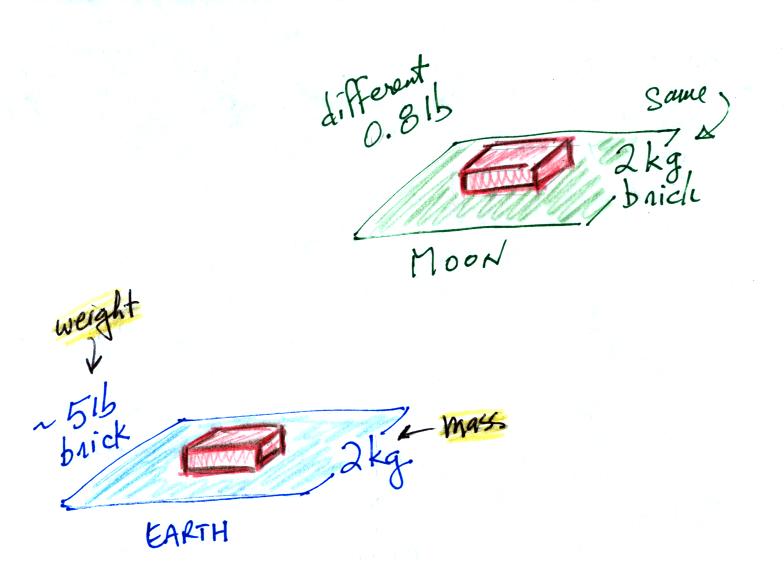 different
0.8lb
same
2kg
brick
MOON
weight
~ 5lb
brick
mass
2kg
EARTH